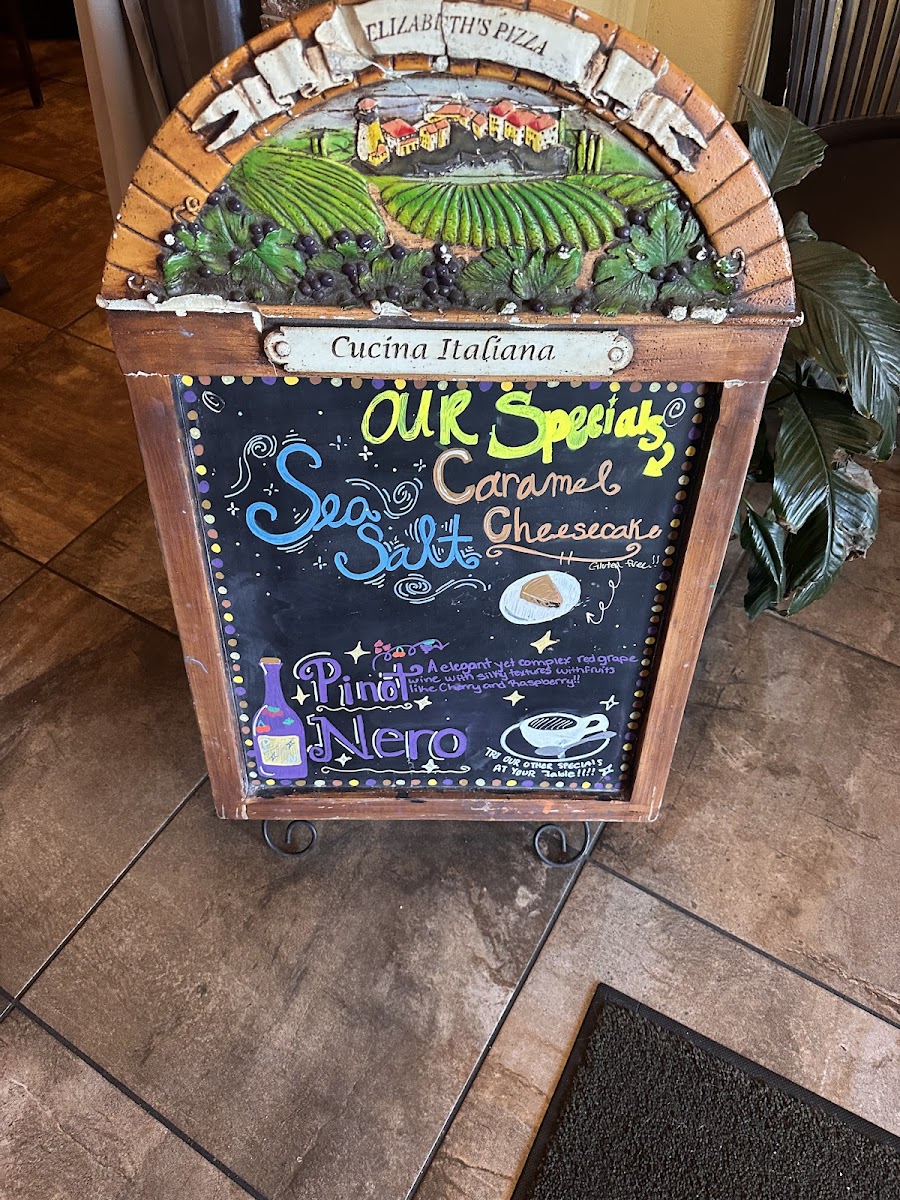 ELIZABETH'S PIZZA
Cucina Italiana
OUR Specials
Sea Salt
Caramel
Cheesecake
Gluten Free!!
Pinot
Nero
A elegant yet complex red grape
wine with silky textures with fruits
like Cherry and Raspberry!!
TRY OUR OTHER SPECIALS
AT YOUR Table!!!!